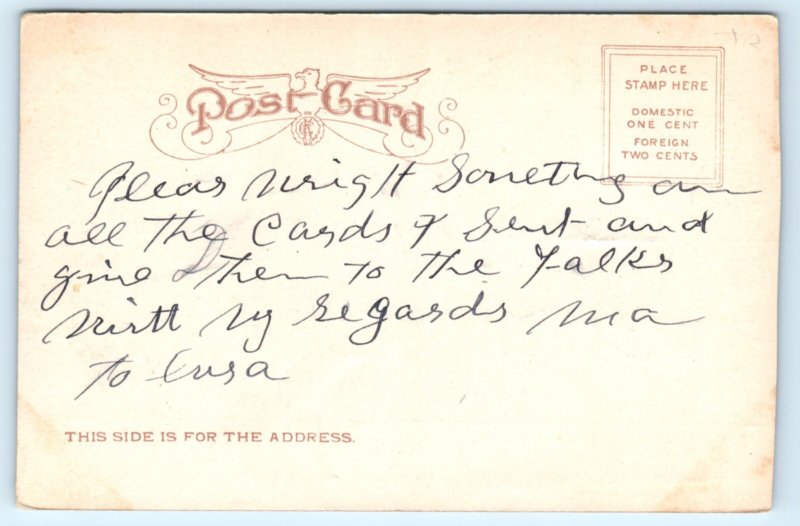 Post Card
PLACE
STAMP HERE
DOMESTIC
ONE CENT
FOREIGN
TWO CENTS
Pleas Wrigh't Someting on
all the Cards I Sent and
give them to the Falks
With My Regards Ma
to
THIS SIDE IS FOR THE ADDRESS.